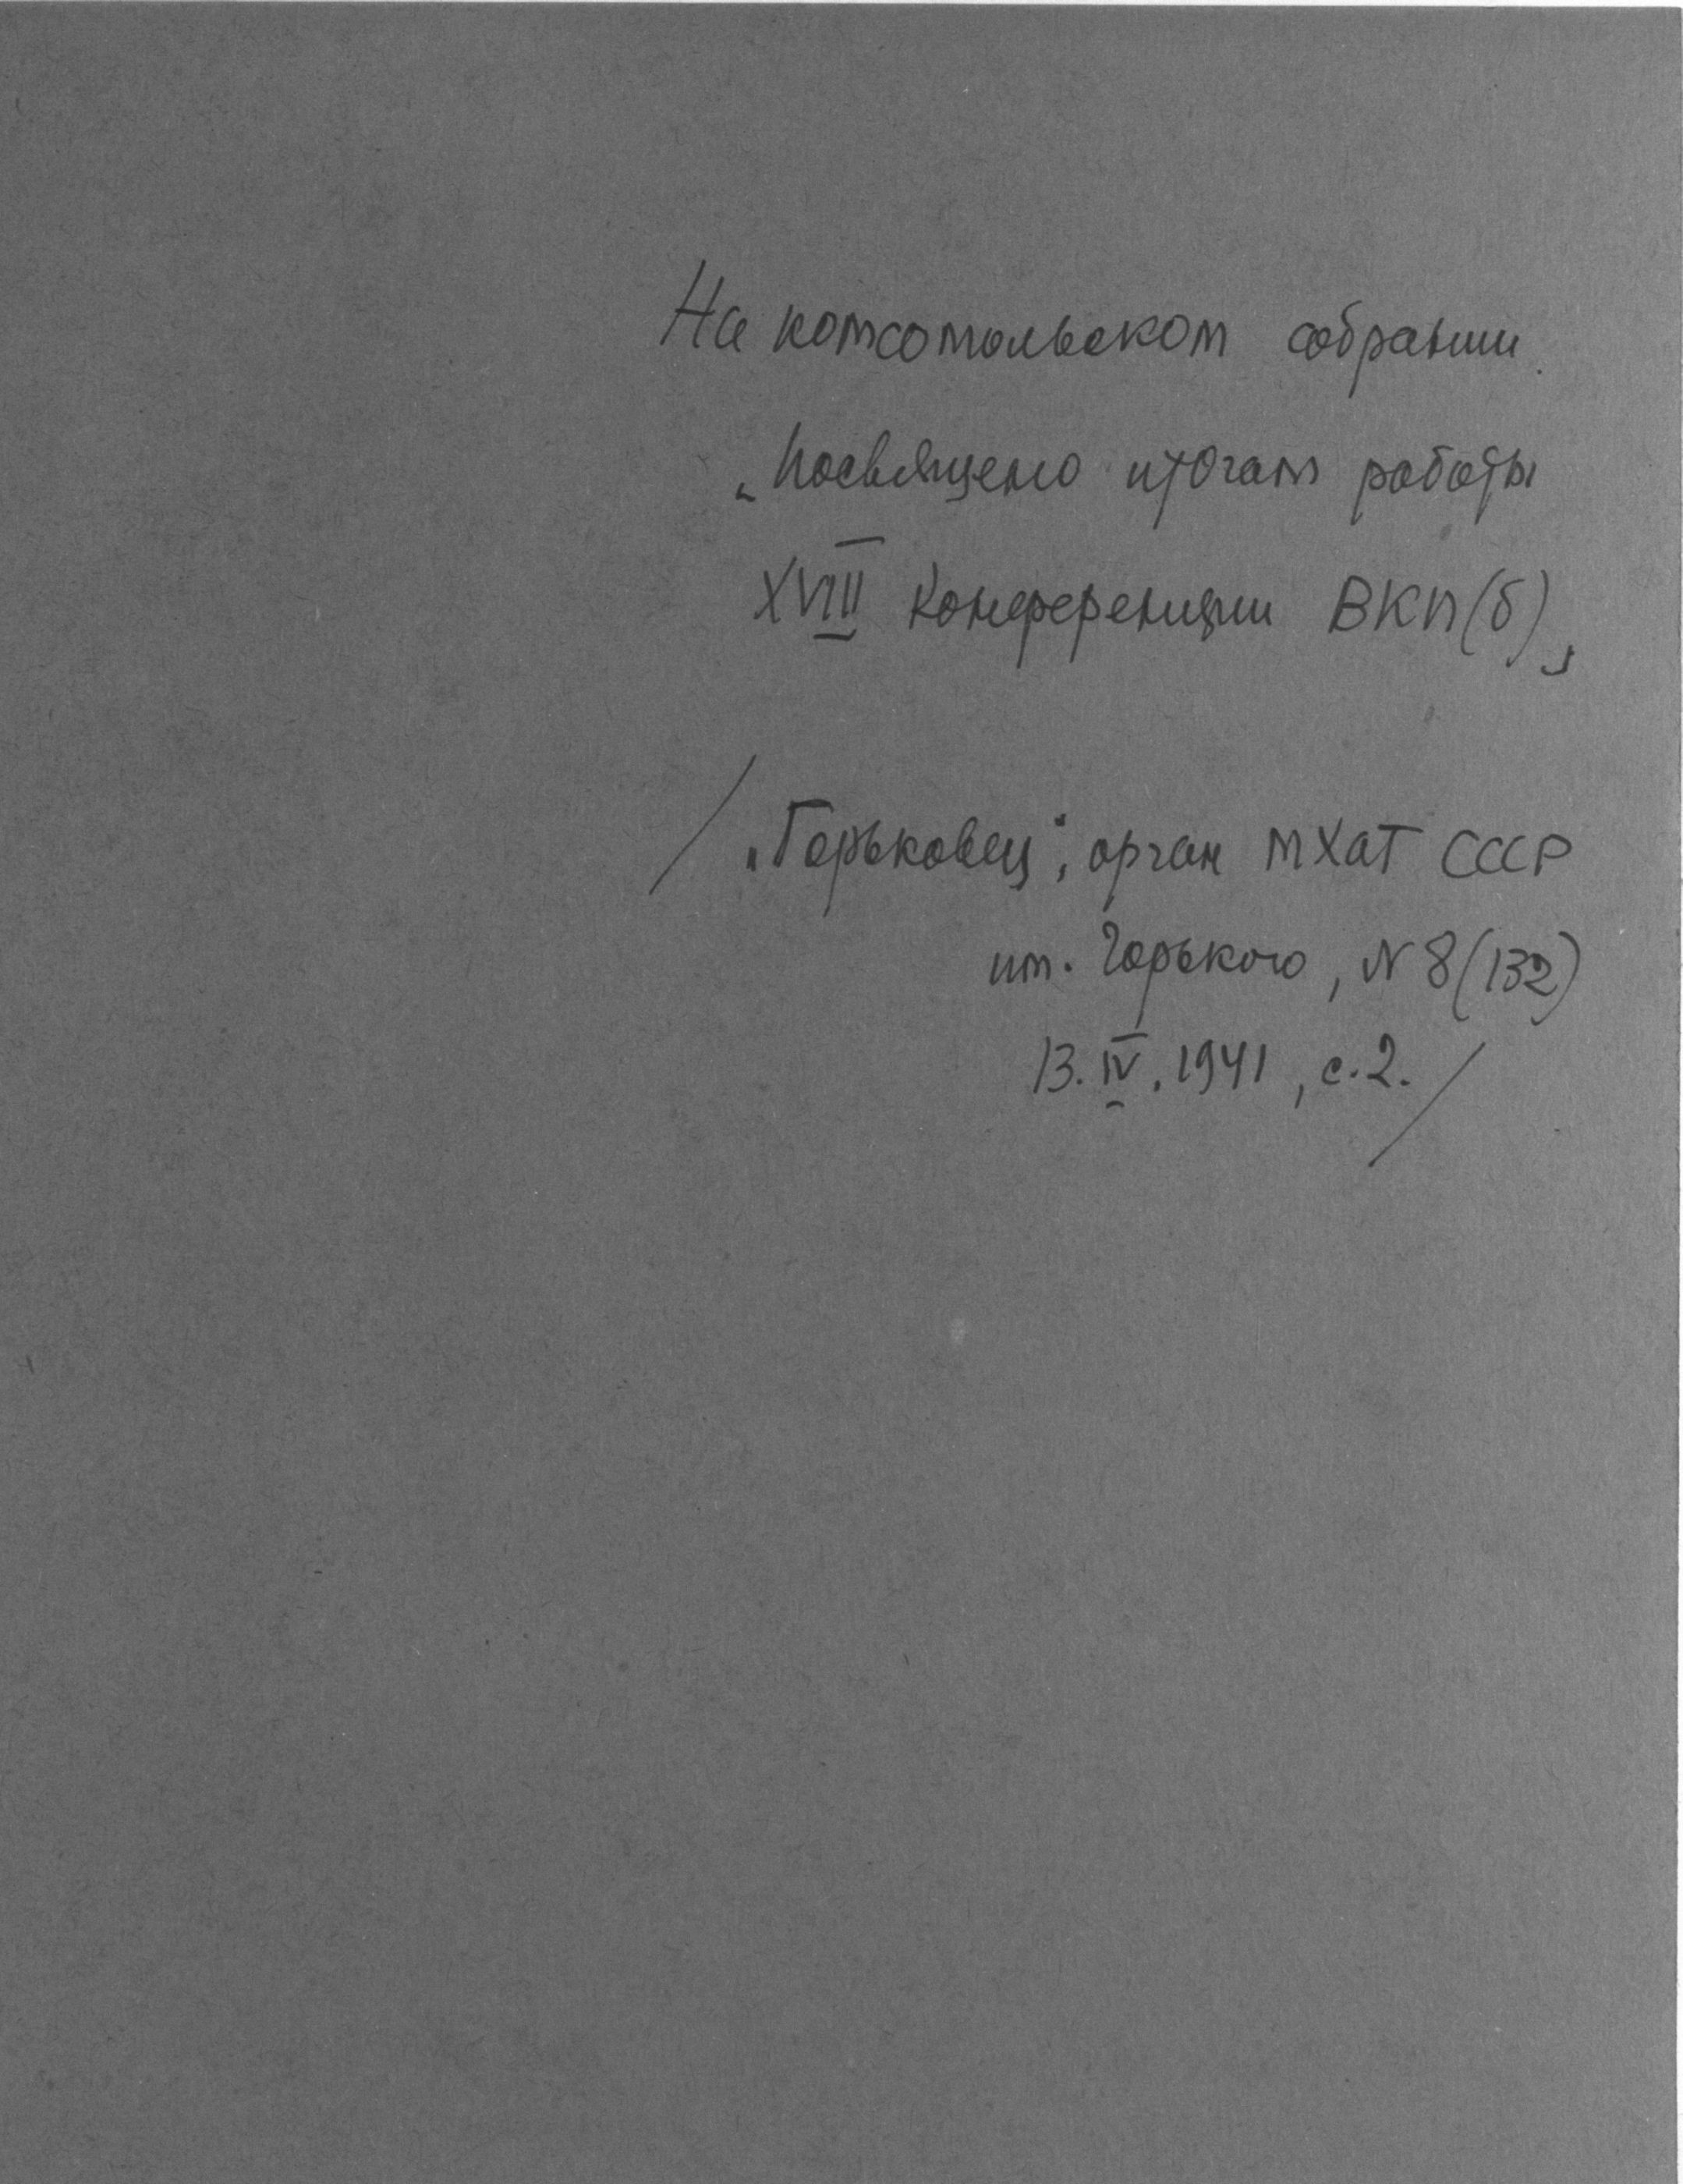 На комсомольском собрании.
„Посвящено итогам работы
XVIII конференции ВКП(б)„
/„Горьковец", орган МХАТ СССР
им. Горького, N 8(132)
13.IV.1941, с.2./